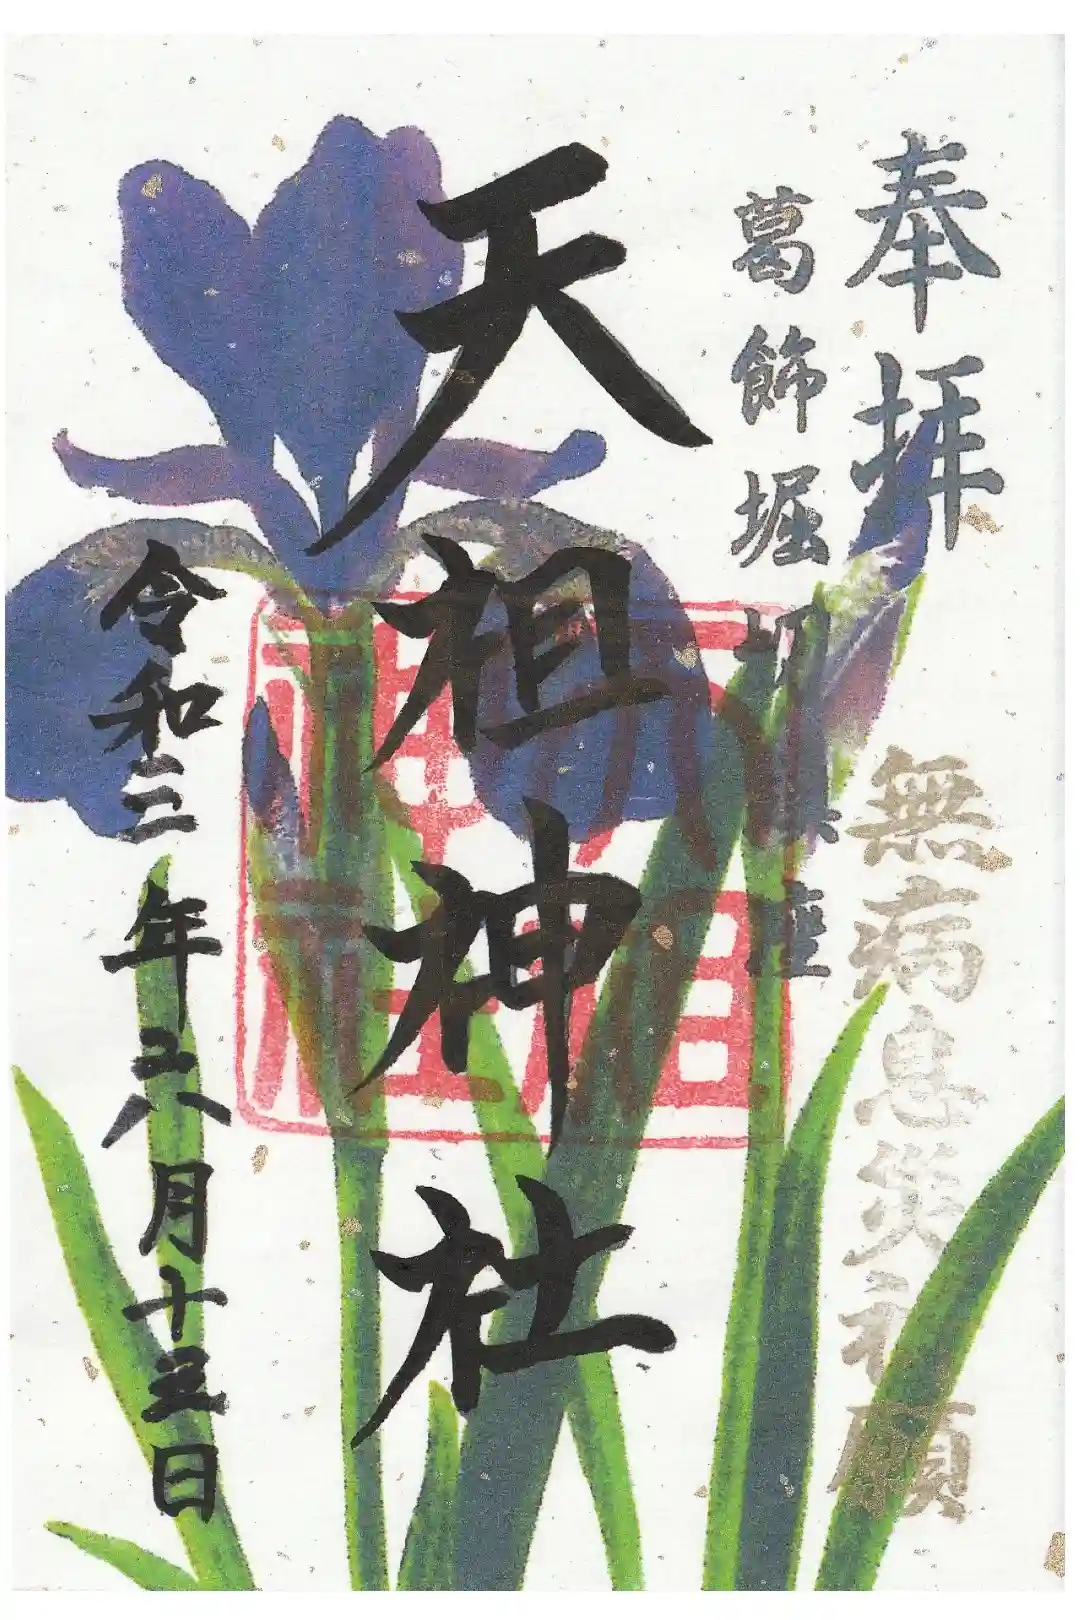 奉拝
無病息災祈願
葛飾堀切鎮座
天祖神社
天祖
神社
令和三年六月十三日